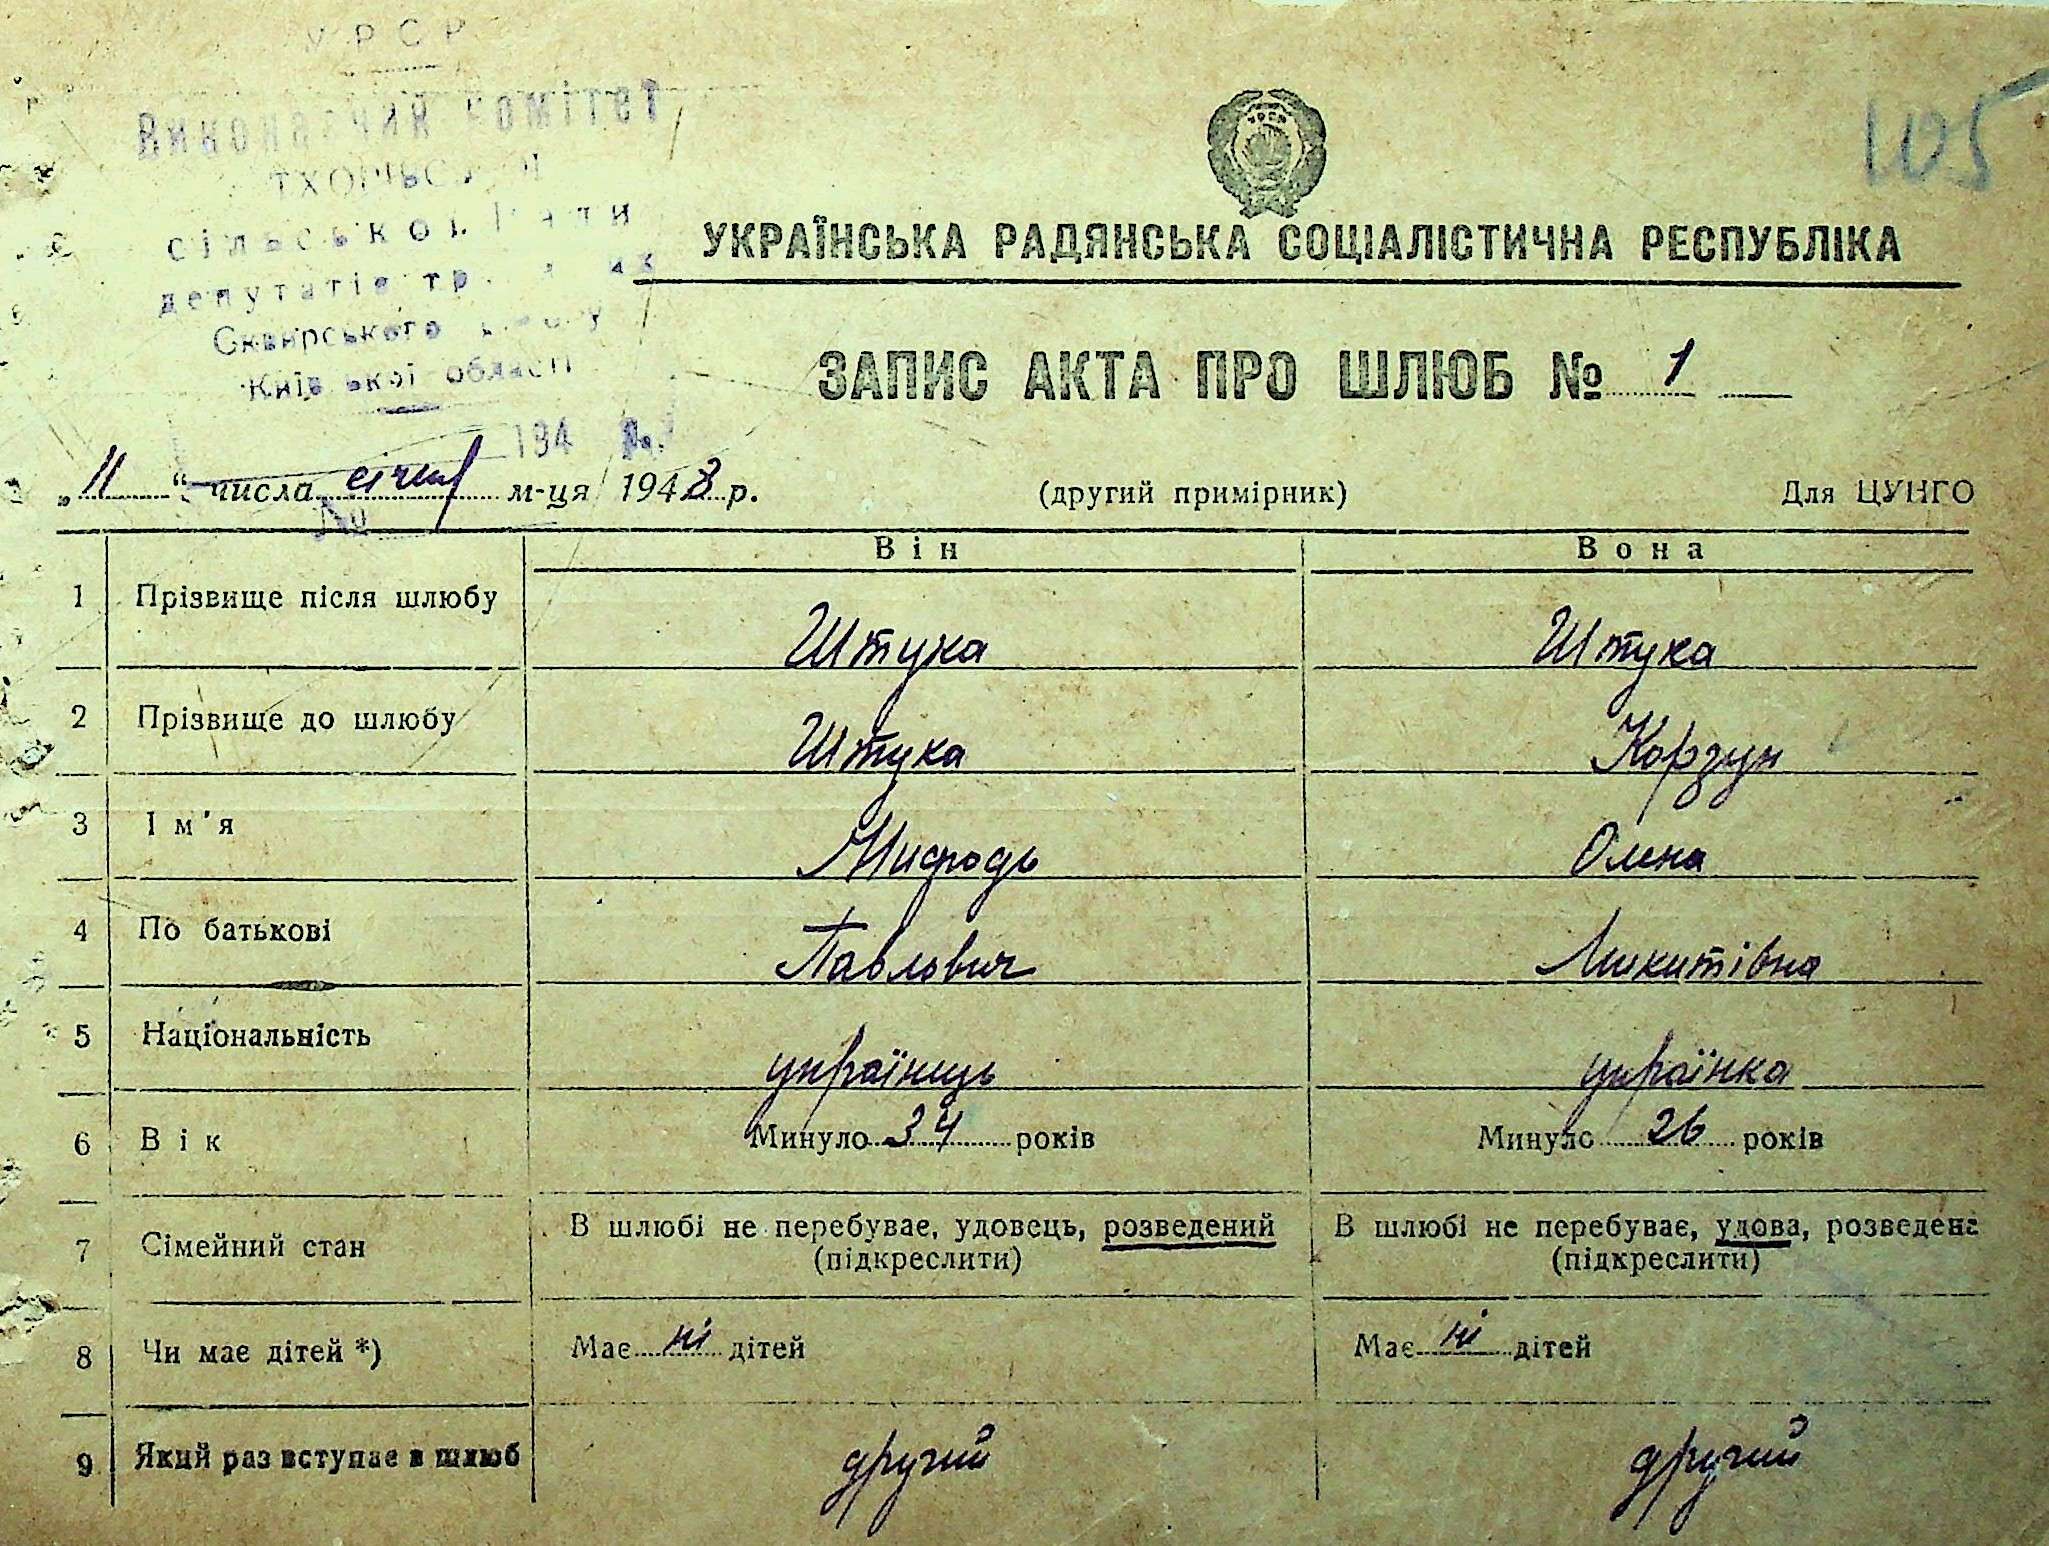 УРСР
Виконавчий комітет
сільської Ради
депутатів
Сквирського
Київської області
194
105
УРСР
УКРАЇНСЬКА РАДЯНСЬКА СОЦІАЛІСТИЧНА РЕСПУБЛІКА
ЗАПИС АКТА ПРО ШЛЮБ № 1
„11“ числа січня м-ця 1948 р. (другий примірник) Для ЦУНГО
Він Вона
1 Прізвище після шлюбу Штука Штука
2 Прізвище до шлюбу Штука Корзун
3 Ім'я Мифодь Олена
4 По батькові Павлович Микитівна
5 Національність українць українка
6 Вік Минуло 34 років Минуло 26 років
7 Сімейний стан В шлюбі не перебуває, удовець, розведений В шлюбі не перебуває, удова, розведена
(підкреслити) (підкреслити)
8 Чи має дітей *) Має ні дітей Має ні дітей
9 Який раз вступає в шлюб другий другий